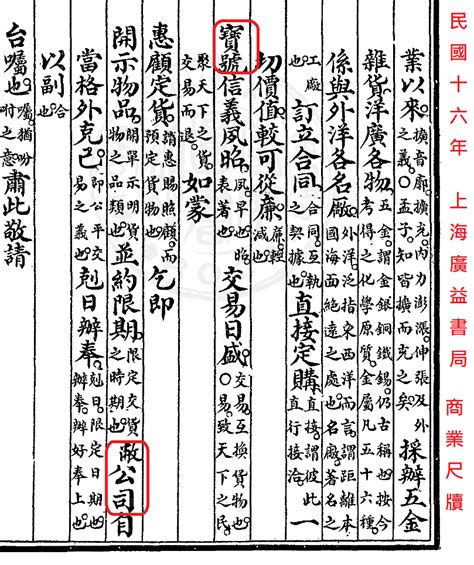 民國十六年 上海廣益書局 商業尺牘
業以來。擴音廓。擴充。內力澎漲。伸張及外之義。○孟子。知皆擴而充之矣。採辦五金
雜貨洋廣各物。五金。謂金銀銅鐵錫。仍古稱也。按今考得之化學原質。金屬凡五十六種。
係與外洋各名廠。外洋。泛指東西洋而言。謂距離本國海面絕遠之處也。名廠。著名之
工廠也。訂立合同。合同。互執之契據也。直接定購。直接。謂彼此直行接洽也。一
切價值較可從廉。廉。輕減也。
寶號信義夙昭。夙。早也。昭。表著也。交易日盛。交易。互換貨物也。○易。致天下之民。
聚天下之貨。交易而退。如蒙
惠顧定貨。謂惠賜照顧。而預定貨物也。乞即
開示物品。開單示明貨物之品類也。並約限期。限定交貨之時期也。敝公司自
當格外克己。即公平交易之義也。剋日辦奉。剋日。限定日期也。辦奉。辦好奉上也。
以副合也。
台囑也。囑。猶吩咐之意。肅此敬請